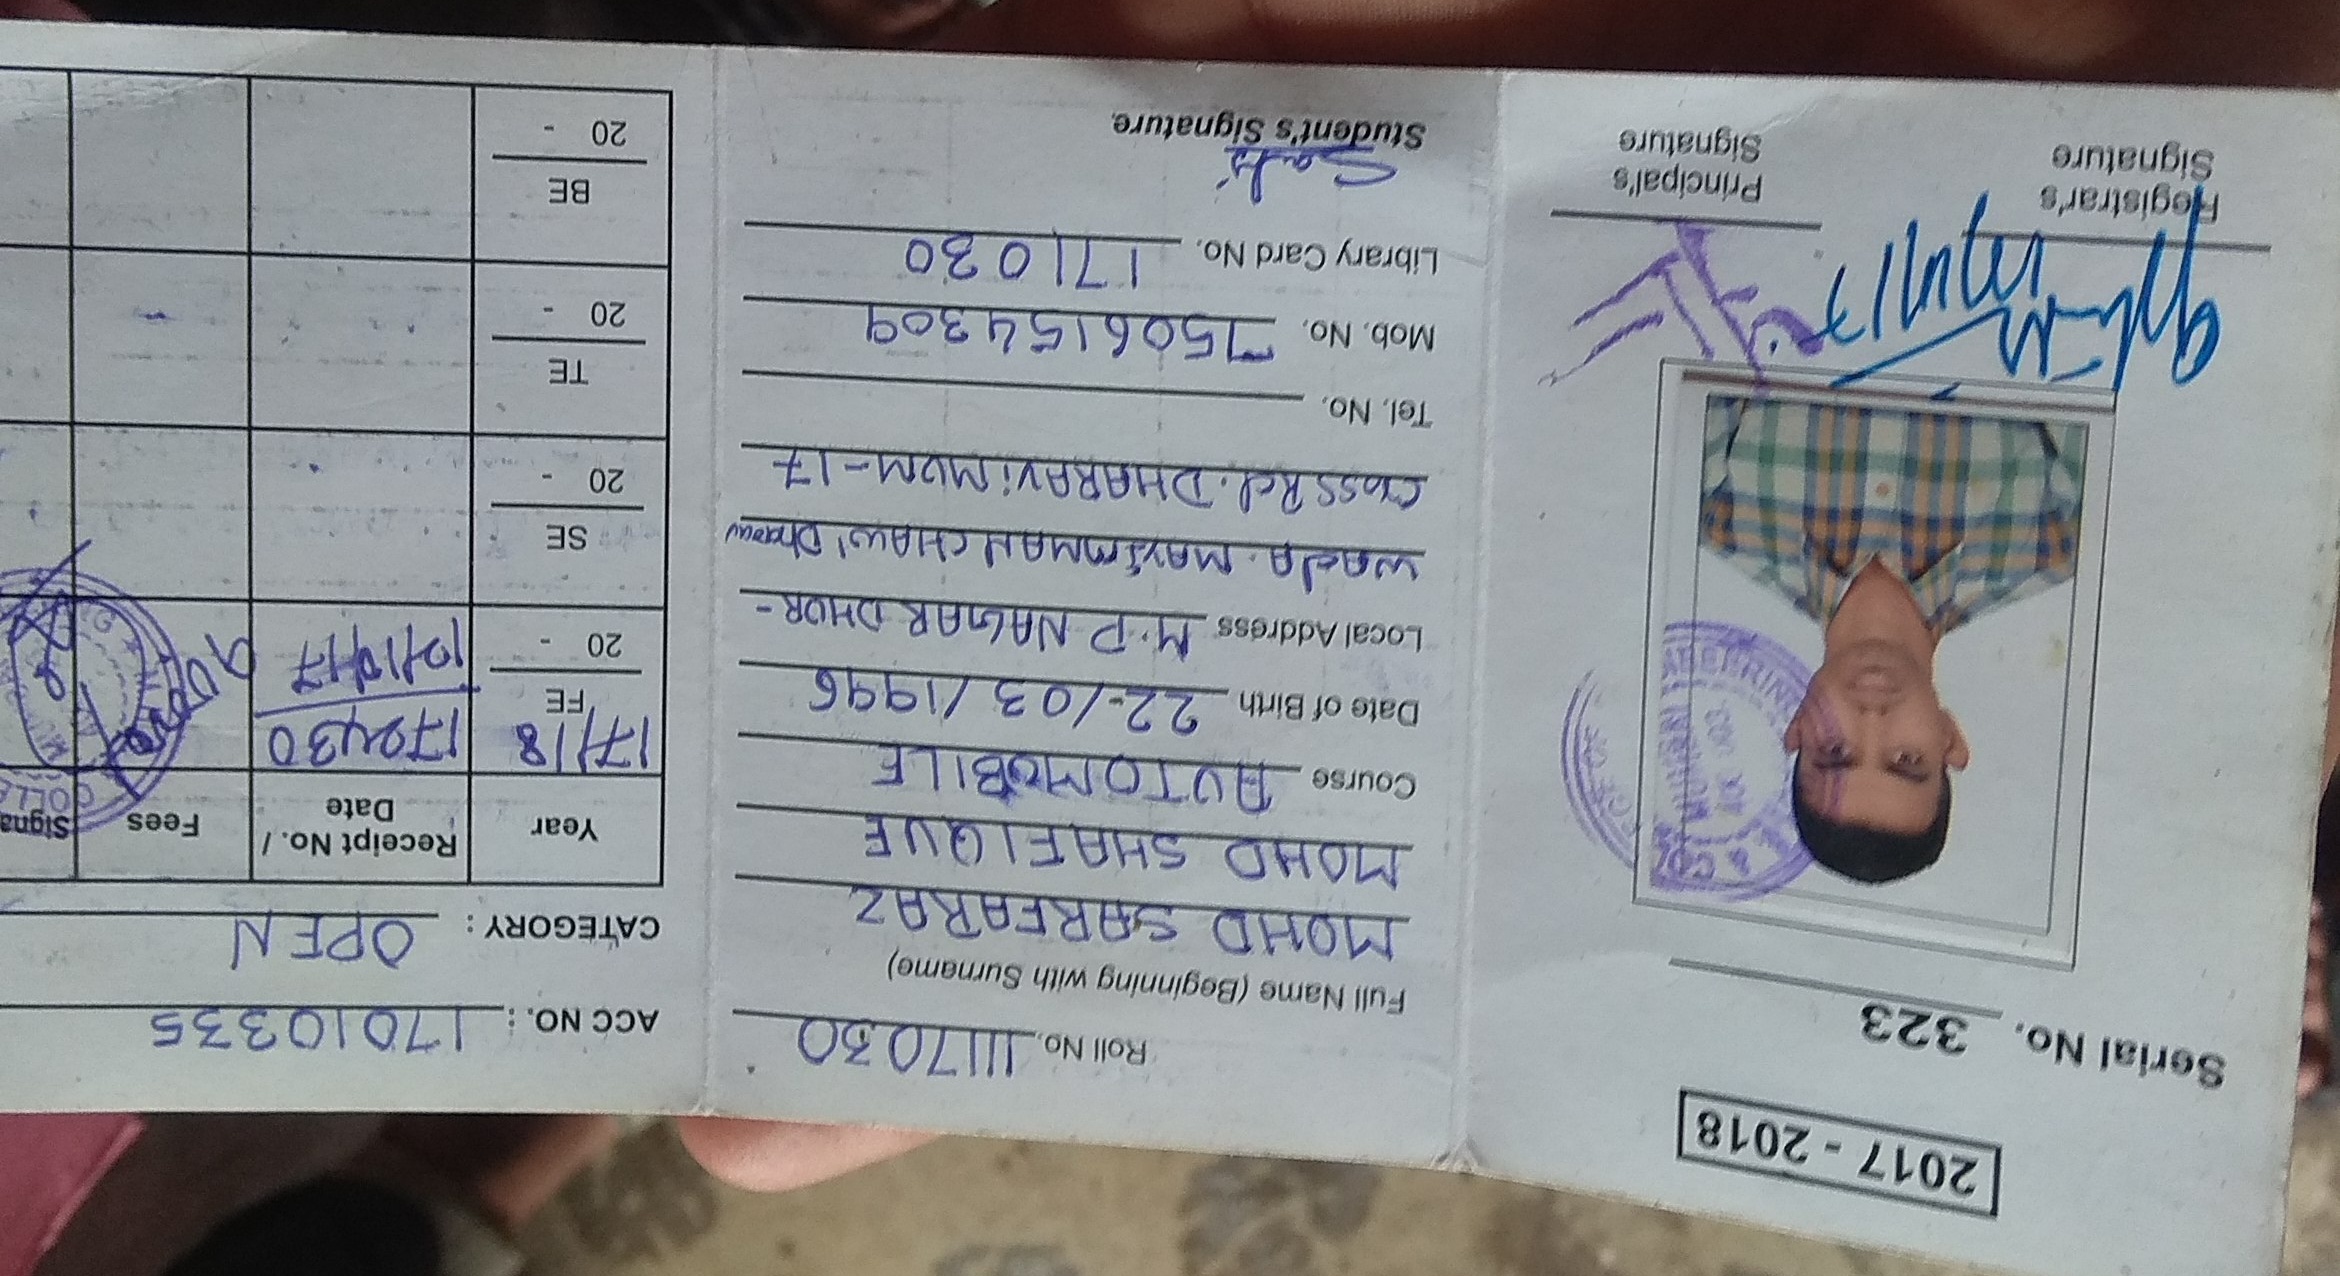 2017 - 2018
Serial No. 323
Registrar's
Signature
Principal's
Signature
Roll No. 1117030
Full Name (Beginning with Surname)
MOHD SARFARAZ
MOHD SHAFIQUE
Course AUTOMOBILE
Date of Birth 22/03/1996
Local Address M.P NAGAR DHOR-
WADA. CHAWL
Cross Rd. DHARAVi MUM-17
Tel. No.
Mob. No. 7506154309
Library Card No. 171030
Student's Signature.
ACC NO. : 17010335
CATEGORY : OPEN
Year Receipt No. / Date Fees Signa
17/18 FE 20 -
SE 20 -
TE 20 -
BE 20 -